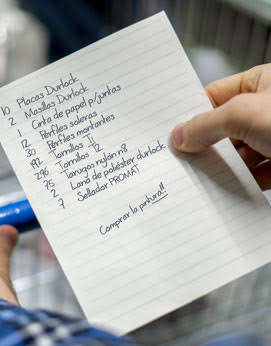 10 Placas Durlock
2 Masillas Durlock
1 Cinta de papel p/juntas
12 Perfiles soleras
30 Perfiles montantes
492 Tornillos T1
296 Tornillos T2
75 Tarugos nylón n8
2 Lana de poliéster durlock
7 Sellador PROMAT
Comprar la pintura!!